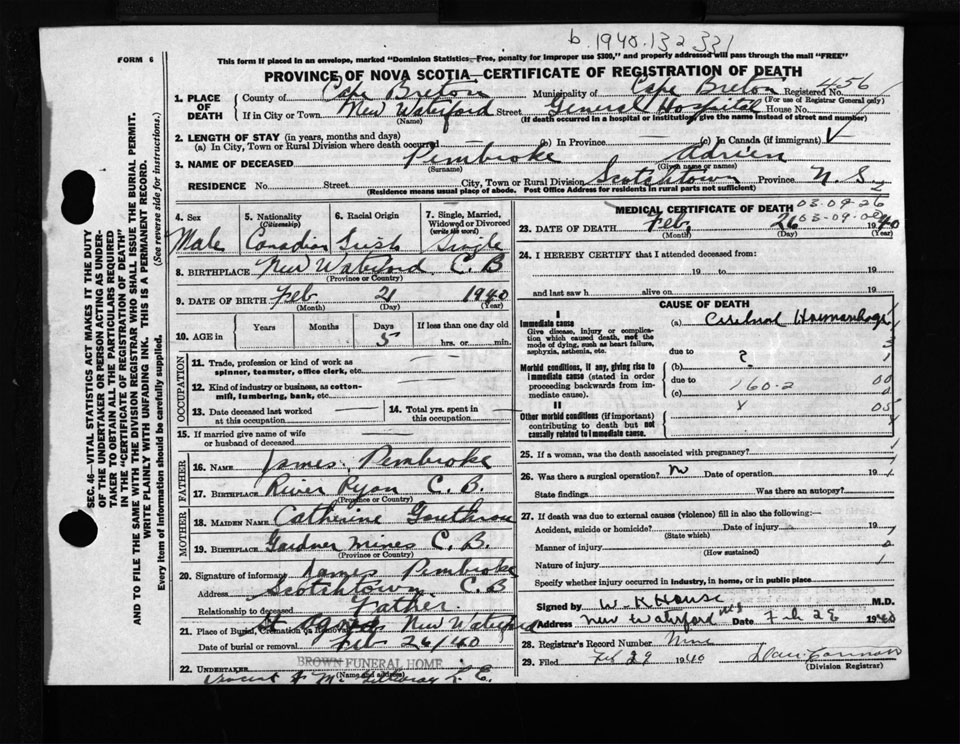 b. 1940.132331
FORM 6
This form if placed in an envelope, marked "Dominion Statistics—Free, penalty for improper use $300," and properly addressed will pass through the mail "FREE"
PROVINCE OF NOVA SCOTIA—CERTIFICATE OF REGISTRATION OF DEATH
1. PLACE OF DEATH
County of Cape Breton Municipality of Cape Breton Registered No. 456
(For use of Registrar General only)
If in City or Town New Waterford Street General Hospital House No.
(Name) (If death occurred in a hospital or institution, give the name instead of street and number)
2. LENGTH OF STAY (in years, months and days)
(a) In City, Town or Rural Division where death occurred (b) In Province (c) In Canada (if immigrant)
3. NAME OF DECEASED Pembroke Adrien
(Surname) (Given name or names)
RESIDENCE No. Street City, Town or Rural Division Scotchtown Province N. S.
(Residence means usual place of abode. Post Office Address for residents in rural parts not sufficient)
SEC. 46—VITAL STATISTICS ACT MAKES IT THE DUTY
OF THE UNDERTAKER OR PERSON ACTING AS UNDER-
TAKER TO OBTAIN ALL THE PARTICULARS REQUIRED
IN THE "CERTIFICATE OF REGISTRATION OF DEATH"
AND TO FILE THE SAME WITH THE DIVISION REGISTRAR WHO SHALL ISSUE THE BURIAL PERMIT.
WRITE PLAINLY WITH UNFADING INK. THIS IS A PERMANENT RECORD.
Every item of information should be carefully supplied. (See reverse side for instructions.)
4. Sex Male
5. Nationality (Citizenship) Canadian
6. Racial Origin Irish
7. Single, Married, Widowed or Divorced (write the word) Single
8. BIRTHPLACE New Waterford C. B
(Province or Country)
9. DATE OF BIRTH Feb. 21 1940
(Month) (Day) (Year)
10. AGE in Years Months Days If less than one day old
5 hrs. or min.
OCCUPATION
11. Trade, profession or kind of work as
spinner, teamster, office clerk, etc.
12. Kind of industry or business, as cotton-
mill, lumbering, bank, etc.
13. Date deceased last worked at this occupation
14. Total yrs. spent in this occupation
15. If married give name of wife
or husband of deceased
FATHER
16. NAME James Pembroke
17. BIRTHPLACE River Ryan C. B.
(Province or Country)
MOTHER
18. MAIDEN NAME Catherine
19. BIRTHPLACE Gardner Mines C. B.
(Province or Country)
20. Signature of informant James Pembroke
Address Scotchtown C. B
Relationship to deceased Father.
21. Place of Burial, Cremation or Removal St Agnes New Waterford
Date of burial or removal Feb 26/40
BROWN FUNERAL HOME
22. UNDERTAKER
(Name and address)
MEDICAL CERTIFICATE OF DEATH 03-09-26
03-09-02
23. DATE OF DEATH Feb. 26 1940
(Month) (Day) (Year)
24. I HEREBY CERTIFY that I attended deceased from:
19 to 19
and last saw h alive on 19
CAUSE OF DEATH
I
Immediate cause (a) Cerebral Haemorrhage
Give disease, injury or complica-
tion which caused death, not the
mode of dying, such as heart failure,
asphyxia, asthenia, etc.
due to ?
Morbid conditions, if any, giving rise to (b)
immediate cause (stated in order due to 160-2
proceeding backwards from im-
mediate cause). (c)
II
Other morbid conditions (if important)
contributing to death but not
causally related to immediate cause.
25. If a woman, was the death associated with pregnancy?
26. Was there a surgical operation? No Date of operation 19
State findings Was there an autopsy?
27. If death was due to external causes (violence) fill in also the following:—
Accident, suicide or homicide? Date of injury 19
(State which)
Manner of injury
(How sustained)
Nature of injury
Specify whether injury occurred in industry, in home, or in public place
Signed by W-K House M.D.
Address New Waterford NS Date Feb 28 1940
28. Registrar's Record Number Nine
29. Filed Feb 29 1940
(Division Registrar)